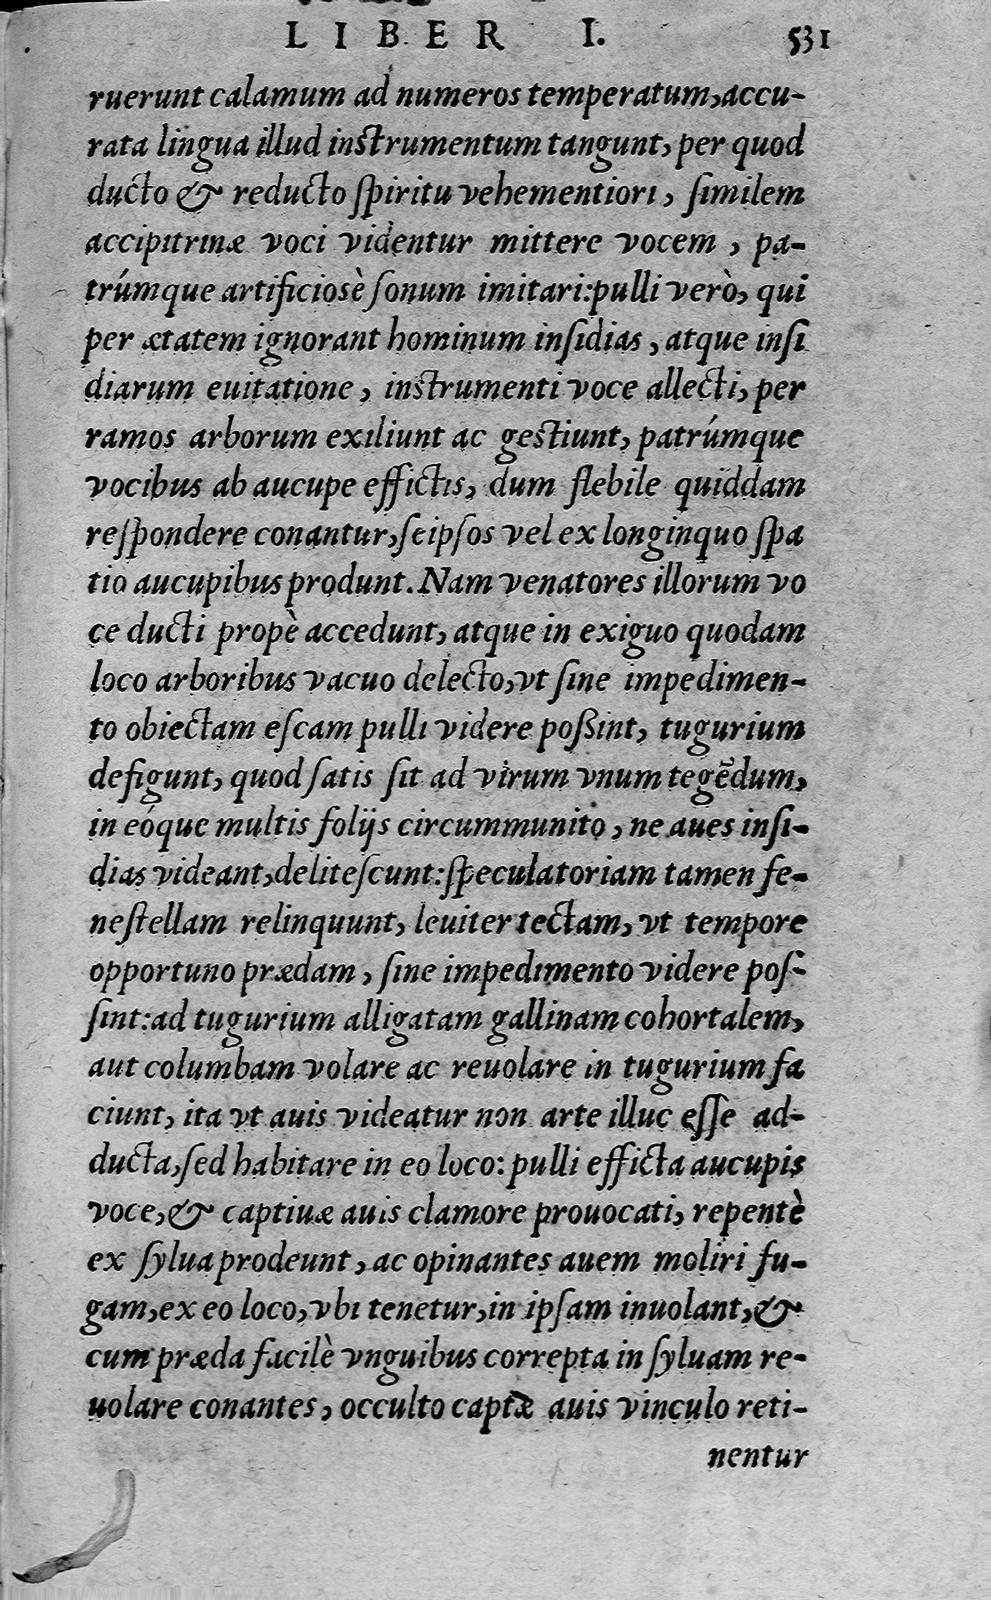 LIBER I. 531
ruerunt calamum ad numeros temperatum, accu-
rata lingua illud instrumentum tangunt, per quod
ducto & reducto ſpiritu vehementiori, ſimilem
accipitrinæ voci videntur mittere vocem, pa-
trúmque artificiosè ſonum imitari: pulli verò, qui
per ætatem ignorant hominum inſidias, atque inſi
diarum euitatione, instrumenti voce allecti, per
ramos arborum exiliunt ac gestiunt, patrúmque
vocibus ab aucupe effictis, dum flebile quiddam
reſpondere conantur, ſeipſos vel ex longinquo ſpa
tio aucupibus produnt. Nam venatores illorum vo
ce ducti propè accedunt, atque in exiguo quodam
loco arboribus vacuo delecto, vt ſine impedimen-
to obiectam eſcam pulli videre poßint, tugurium
defigunt, quod ſatis ſit ad virum vnum tegēdum,
in eóque multis folijs circummunito, ne aues inſi-
dias videant, deliteſcunt: ſpeculatoriam tamen fe-
neſtellam relinquunt, leuiter tectam, vt tempore
opportuno prædam, ſine impedimento videre poſ-
ſint: ad tugurium alligatam gallinam cohortalem,
aut columbam volare ac reuolare in tugurium fa
ciunt, ita vt auis videatur non arte illuc eſſe ad-
ducta, ſed habitare in eo loco: pulli efficta aucupis
voce, & captiuæ auis clamore prouocati, repentè
ex ſylua prodeunt, ac opinantes auem moliri fu-
gam, ex eo loco, vbi tenetur, in ipſam inuolant, &
cum præda facilè vnguibus correpta in ſyluam re-
uolare conantes, occulto captæ auis vinculo reti-
nentur